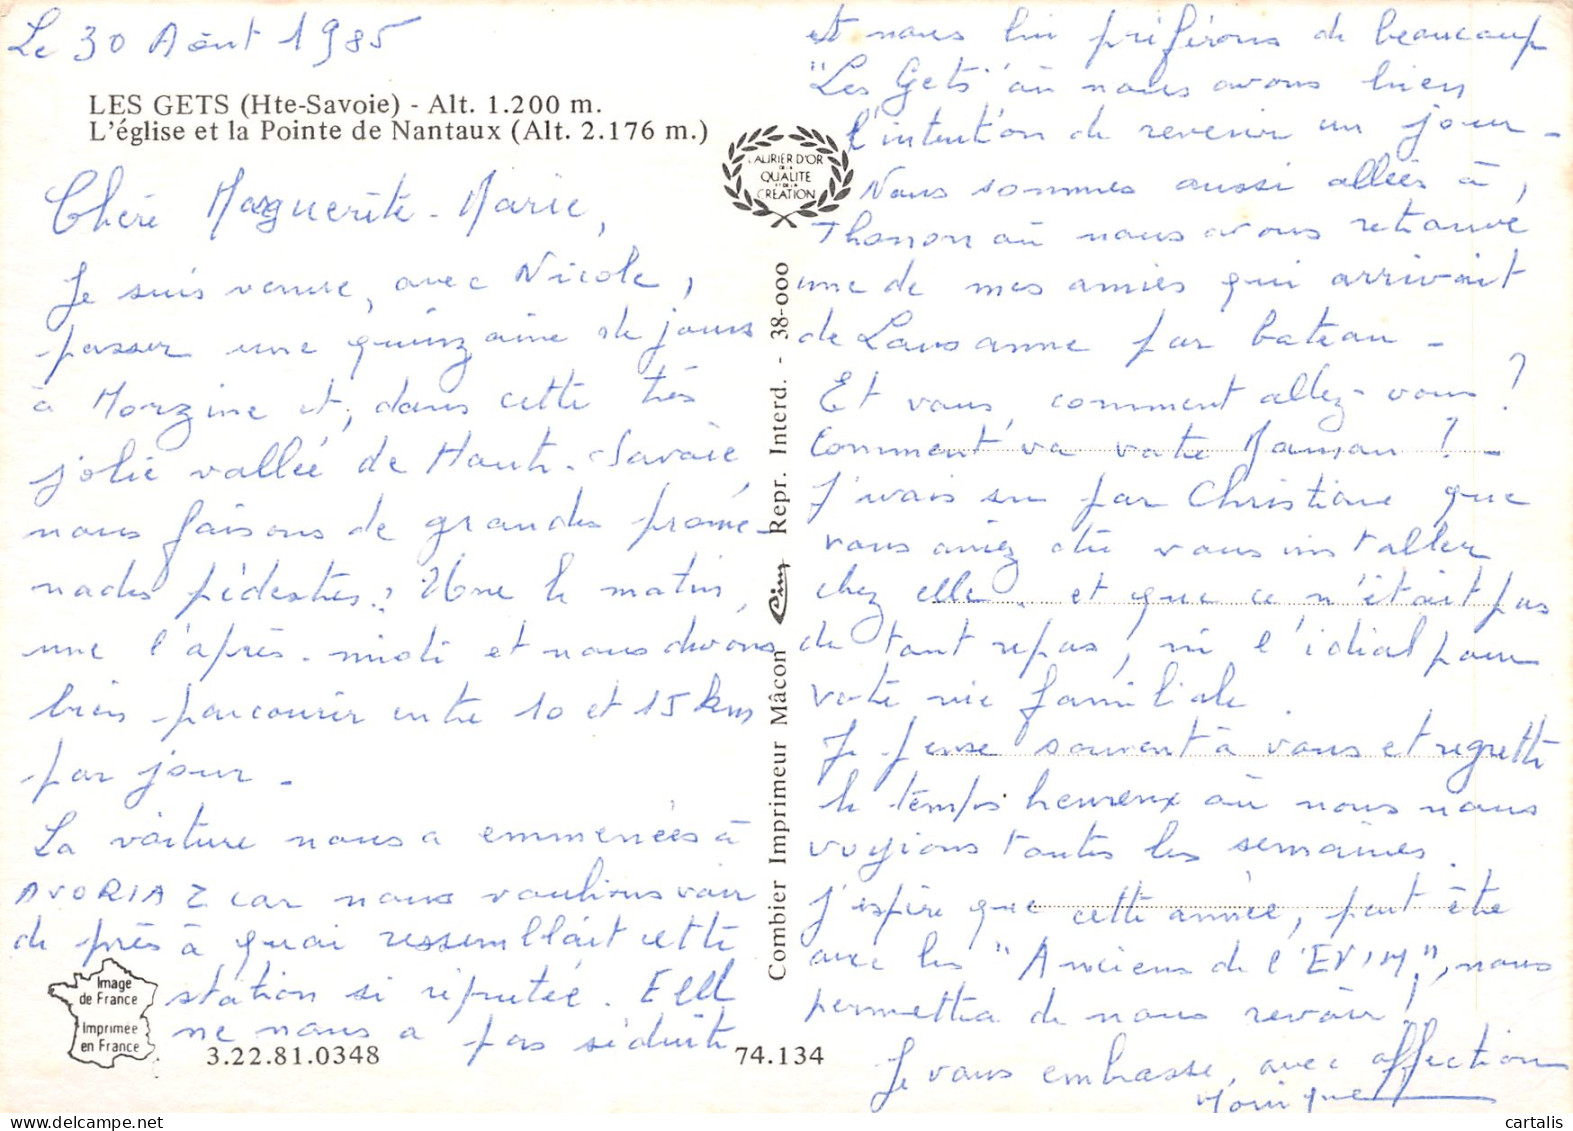 Le 30 Août 1985
LES GETS (Hte-Savoie) - Alt. 1.200 m.
L'église et la Pointe de Nantaux (Alt. 2.176 m.)
Chère Marguerite-Marie,
Je suis venue, avec Nicole,
passer une quinzaine de jours
à Morzine et, dans cette très
jolie vallée de Haute-Savoie,
nous faisons de grandes prome-
nades pédestres : Une le matin,
une l'après-midi et nous devons
bien parcourir entre 10 et 15 km
par jour -
La voiture nous a emmenées à
AVORIAZ car nous voulions voir
de près à quoi ressemblait cette
station si réputée. Elle
ne nous a pas séduite
Image
de France
Imprimée
en France
3.22.81.0348
74.134
LAURIER D'OR
DE LA
QUALITE
ET DE LA
CREATION
Combier Imprimeur Mâcon Cim Repr. Interd. - 38-000
et nous lui préférons de beaucoup
"Les Gets" où nous avons bien
l'intention de revenir un jour -
Nous sommes aussi allées à
Thonon où nous avons retrouvé
une de mes amies qui arrivait
de Lausanne par bateau -
Et vous, comment allez-vous ?
Comment va votre Maman ? -
J'avais su par Christiane que
vous aviez dû vous installer
chez elle. et que ce n'était pas
de tout repos, ni l'idéal pour
votre vie familiale.
Je pense souvent à vous et regrette
le temps heureux où nous nous
voyions toutes les semaines.
J'espère que cette année, peut être
avec les "Anciens de l'EVIM", nous
permettra de nous revoir !
Je vous embrasse, avec affection
Monique
cartalis